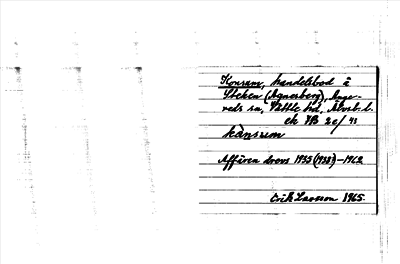 Konsum, handelsbod å
Steken (Agnesberg), Ange-
reds sn, Vättle hd, Älvsb. l.
ek 7B 2e/43
kånsum
Affären drevs 1935 (1938?)-1962
Erik Larsson 1965.